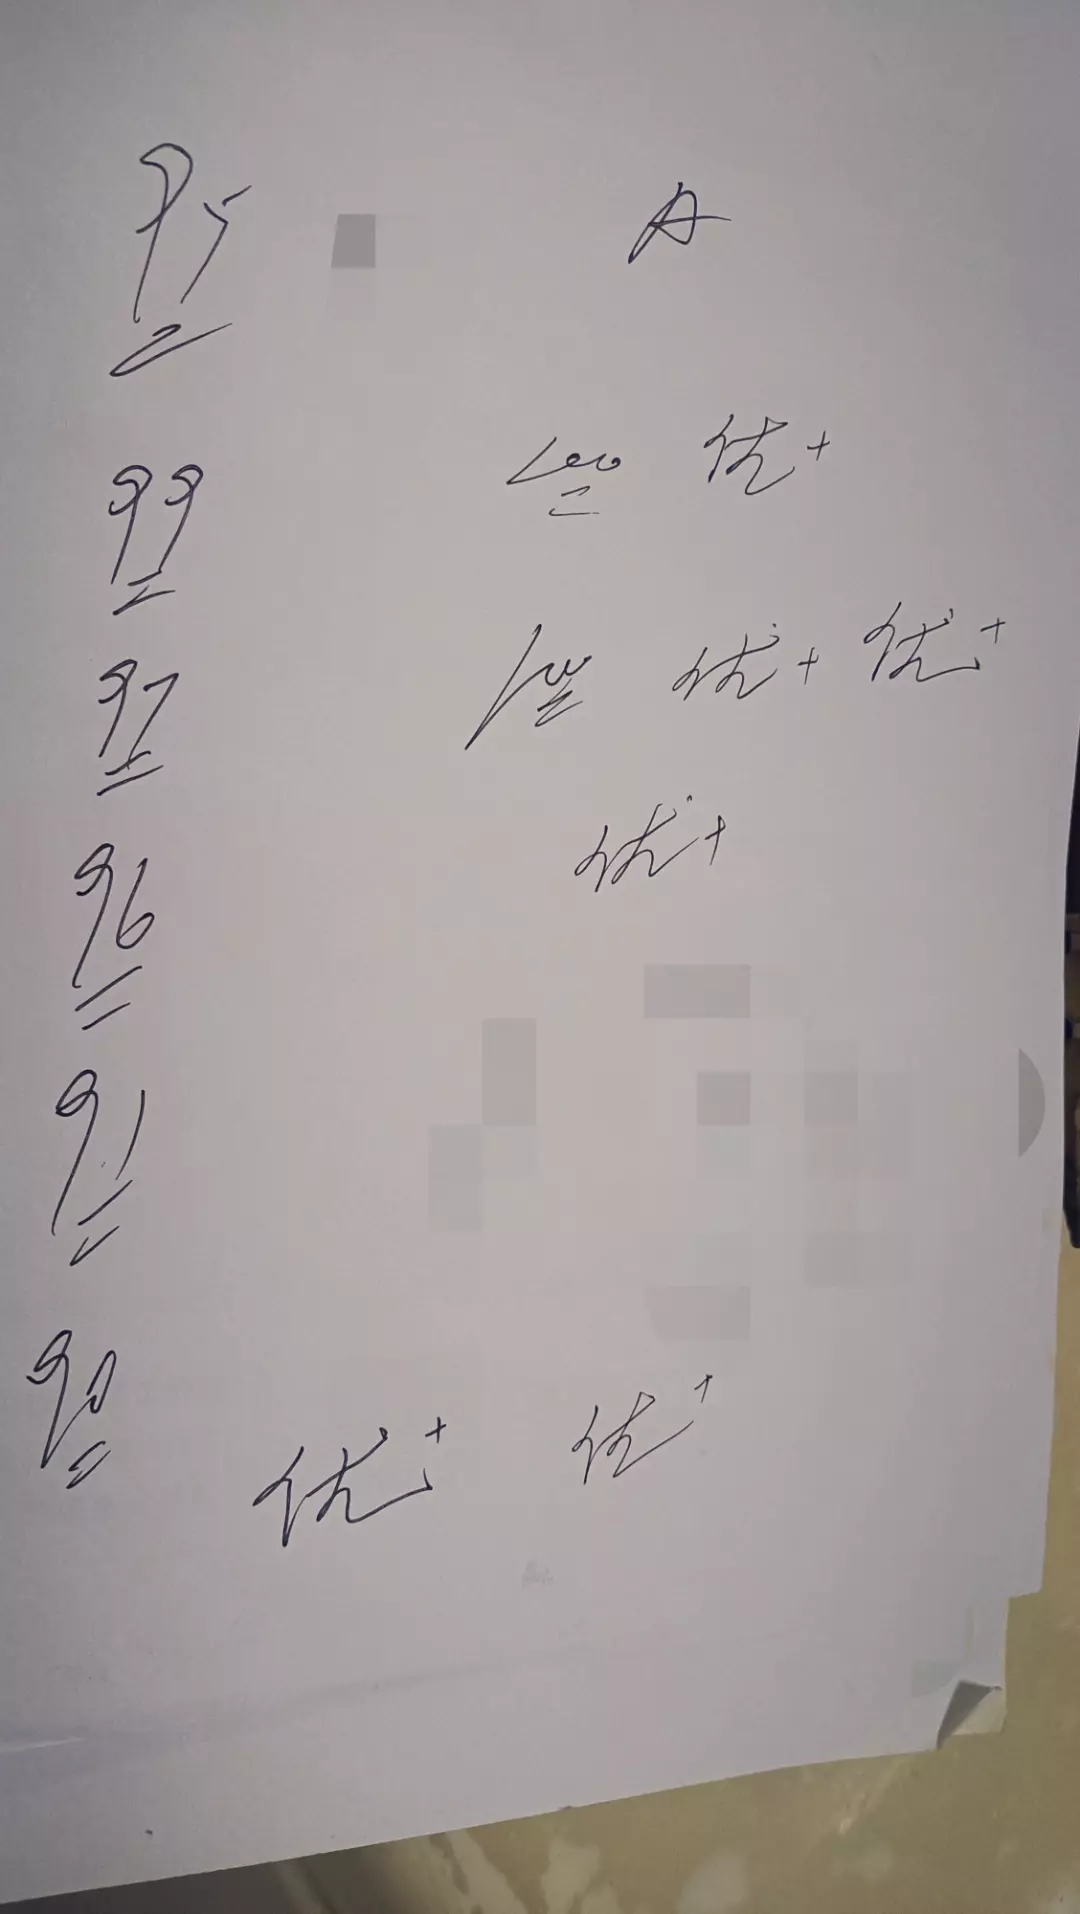 95 A
99 100 优+
97 100 优+ 优+
96 优+
91
90 优+ 优+